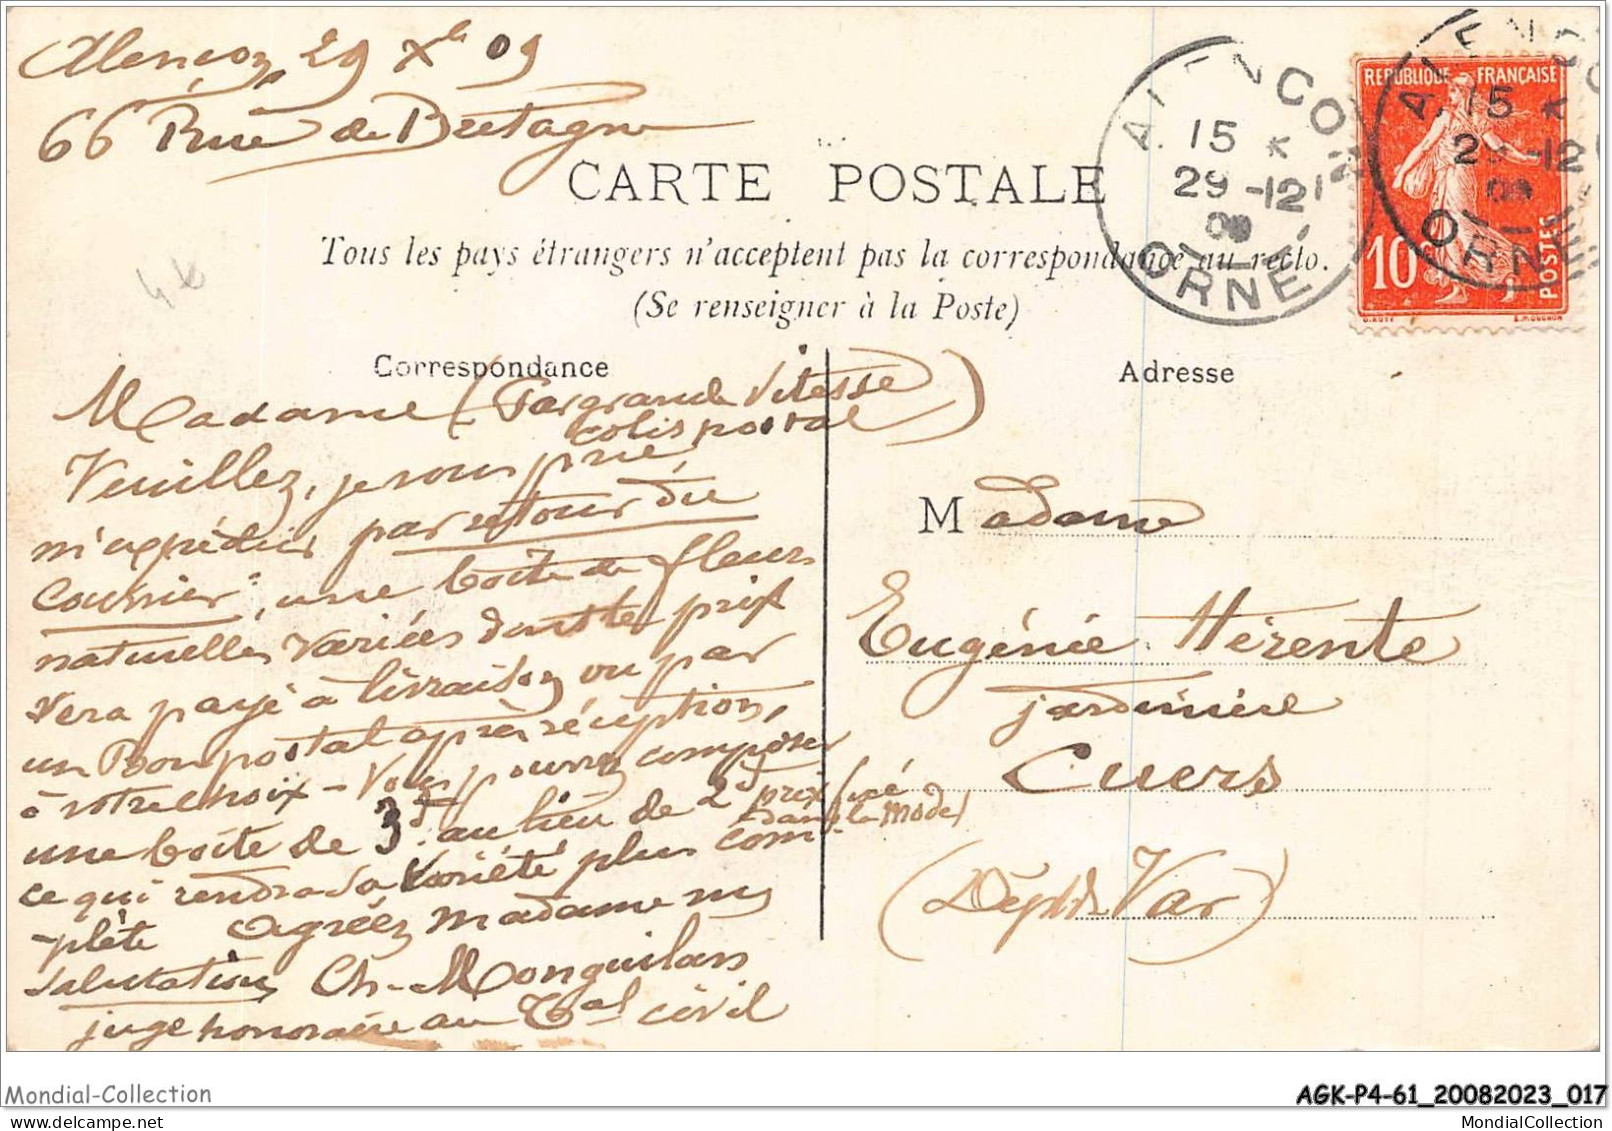 Alençon, 29 Xbre 09
66 Rue de Bretagne
CARTE POSTALE
Tous les pays étrangers n'acceptent pas la correspondance au recto.
(Se renseigner à la Poste)
Correspondance
Madame (Par grande Vitesse
colis postal)
Veuillez, je vous prie,
m'expédier par retour du
Courrier, une boîte de fleurs
naturelles variées dont le prix
sera payé à livraison ou par
un Bon postal après réception,
à votre choix - Vous pourrez composer
une boîte de 3f au lieu de 2f prix fixé
dans la Mode,
ce qui rendra sa variété plus com
-plète Agréez madame mes
salutations Ch. Monguilan
juge honoraire au Tal civil
Adresse
Madame
Eugénie Hérente
jardinière
Cuers
(Dépt du Var)
ALENCON
15
29 -12
09
ORNE
REPUBLIQUE FRANÇAISE
10c
POSTES
O. ROTY
E. MOUCHON
ALENCON
15
29 -12
09
ORNE
46
Mondial-Collection
AGK-P4-61_20082023_017
MondialCollection